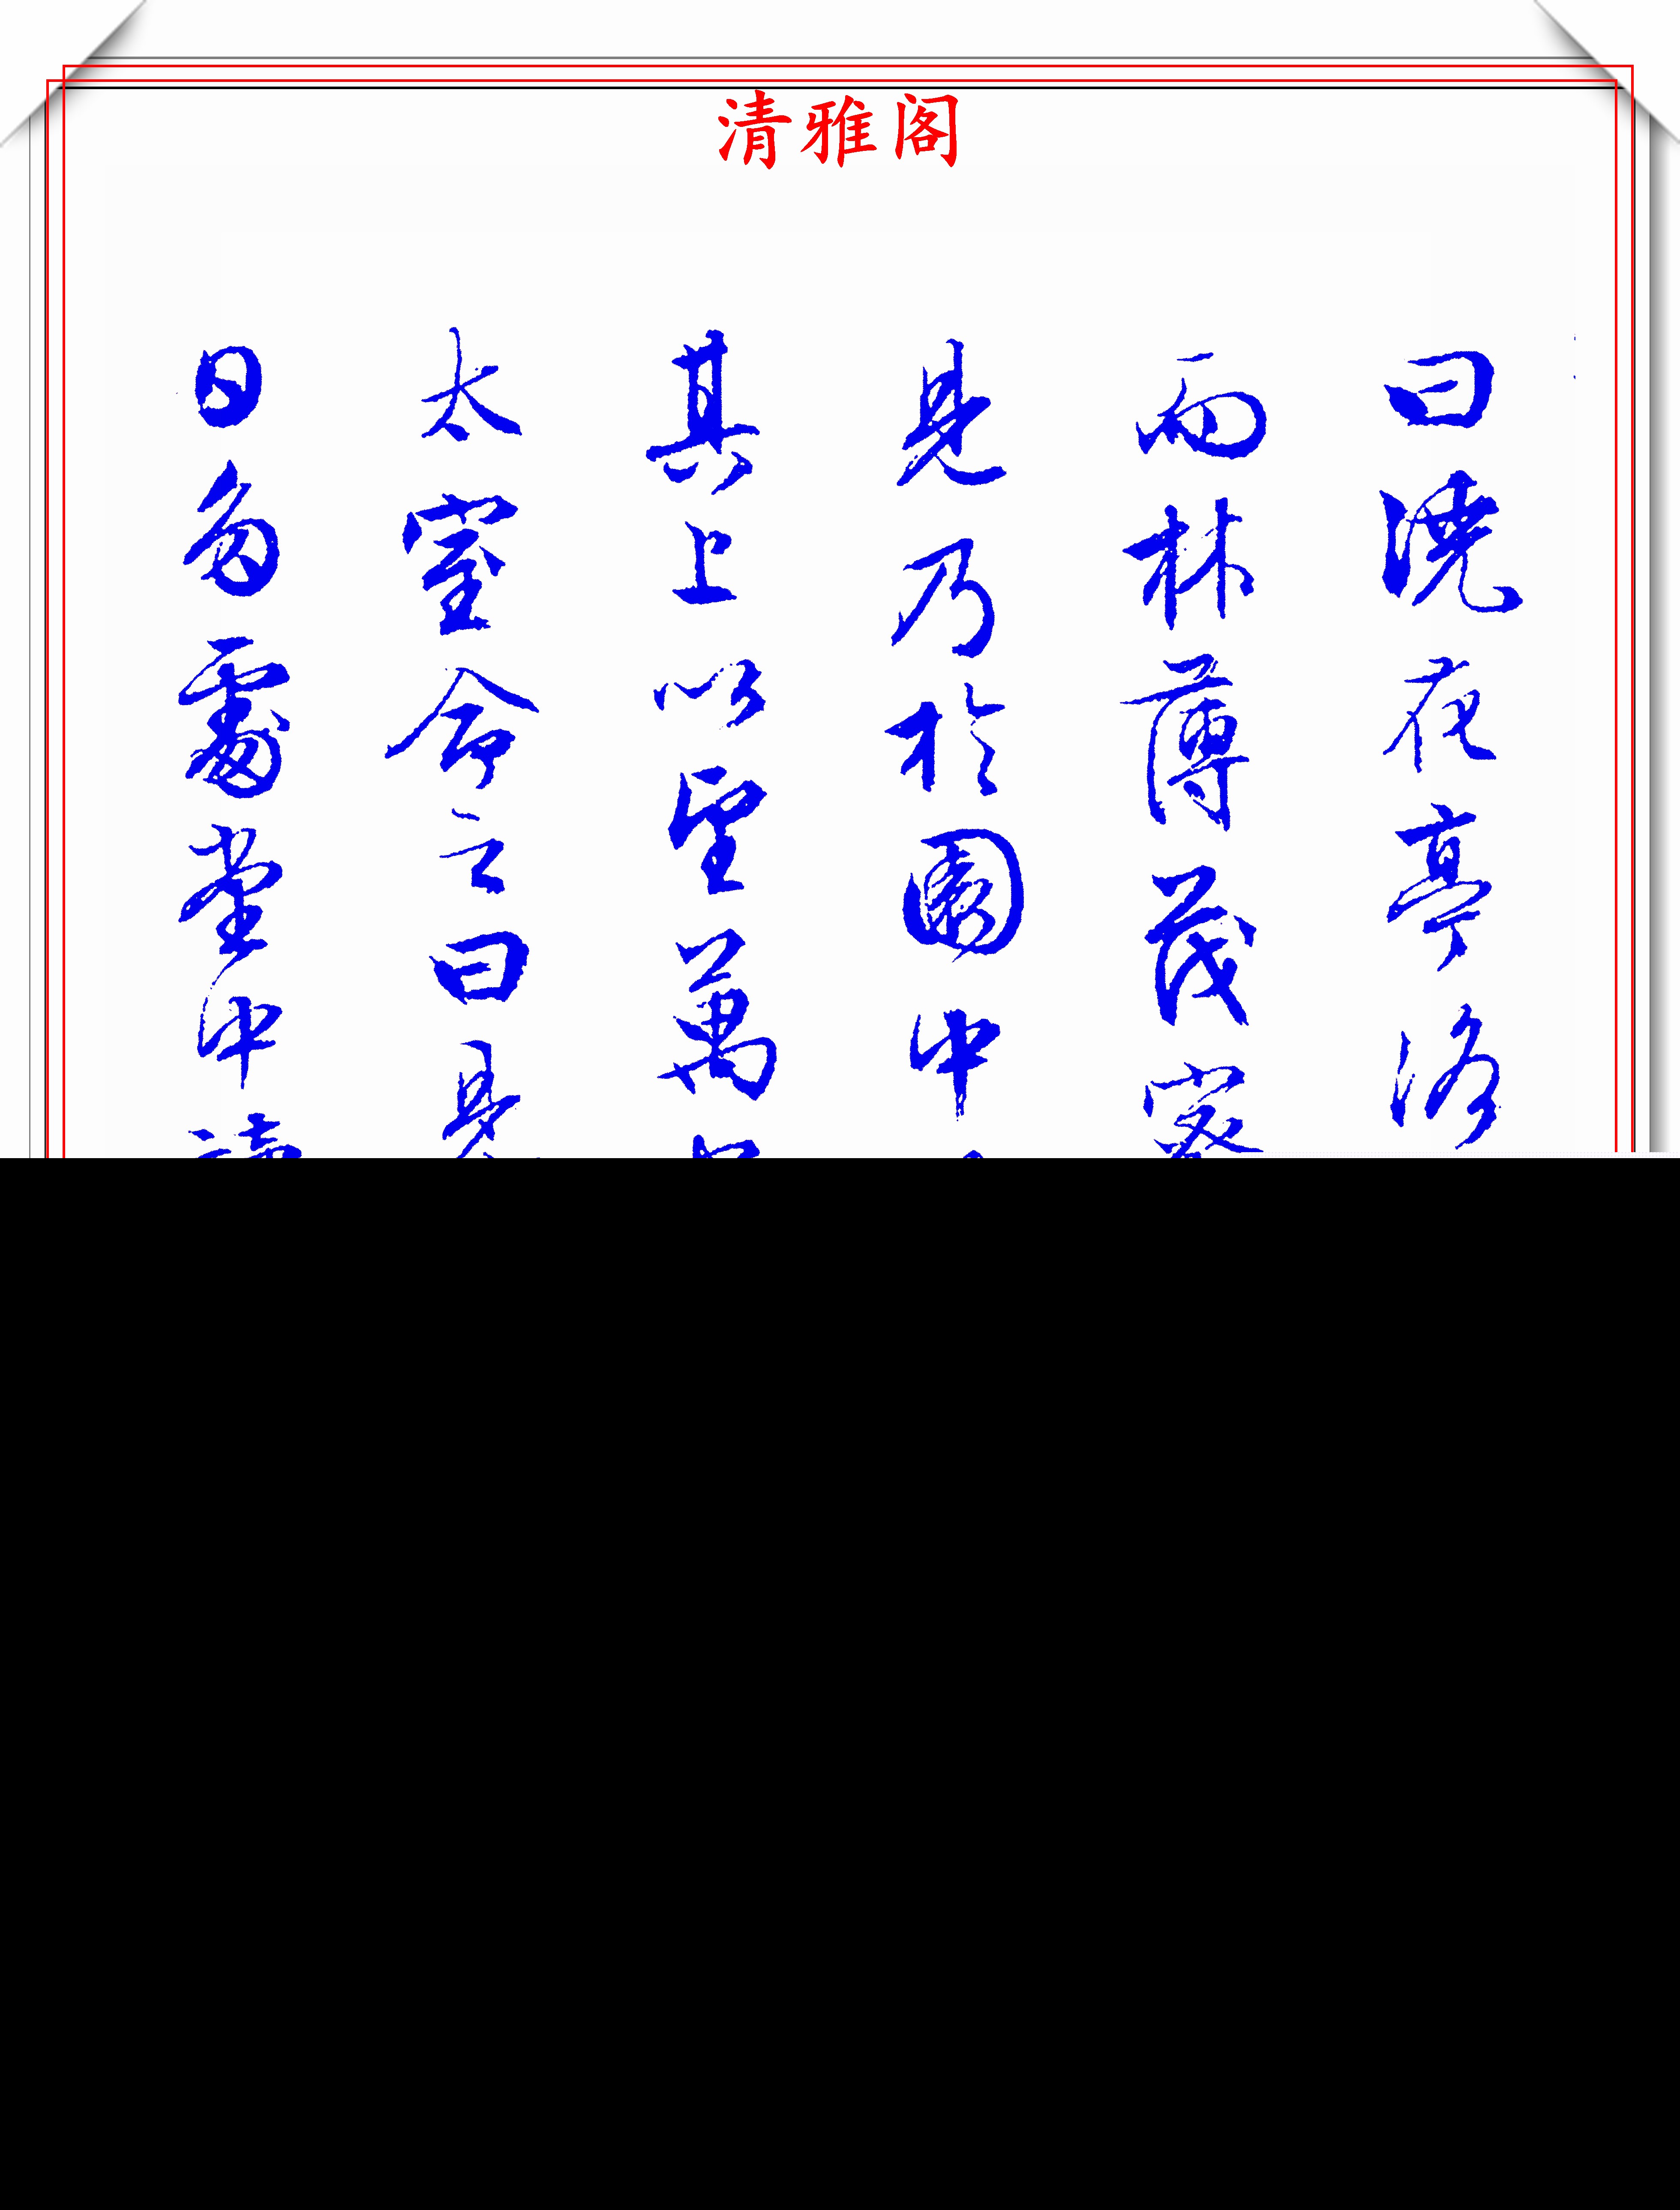 清雅阁
曰澆花亭洛
而林薄茂密
見乃於園中
其上以望萬
太室命之曰見
日多處堂中